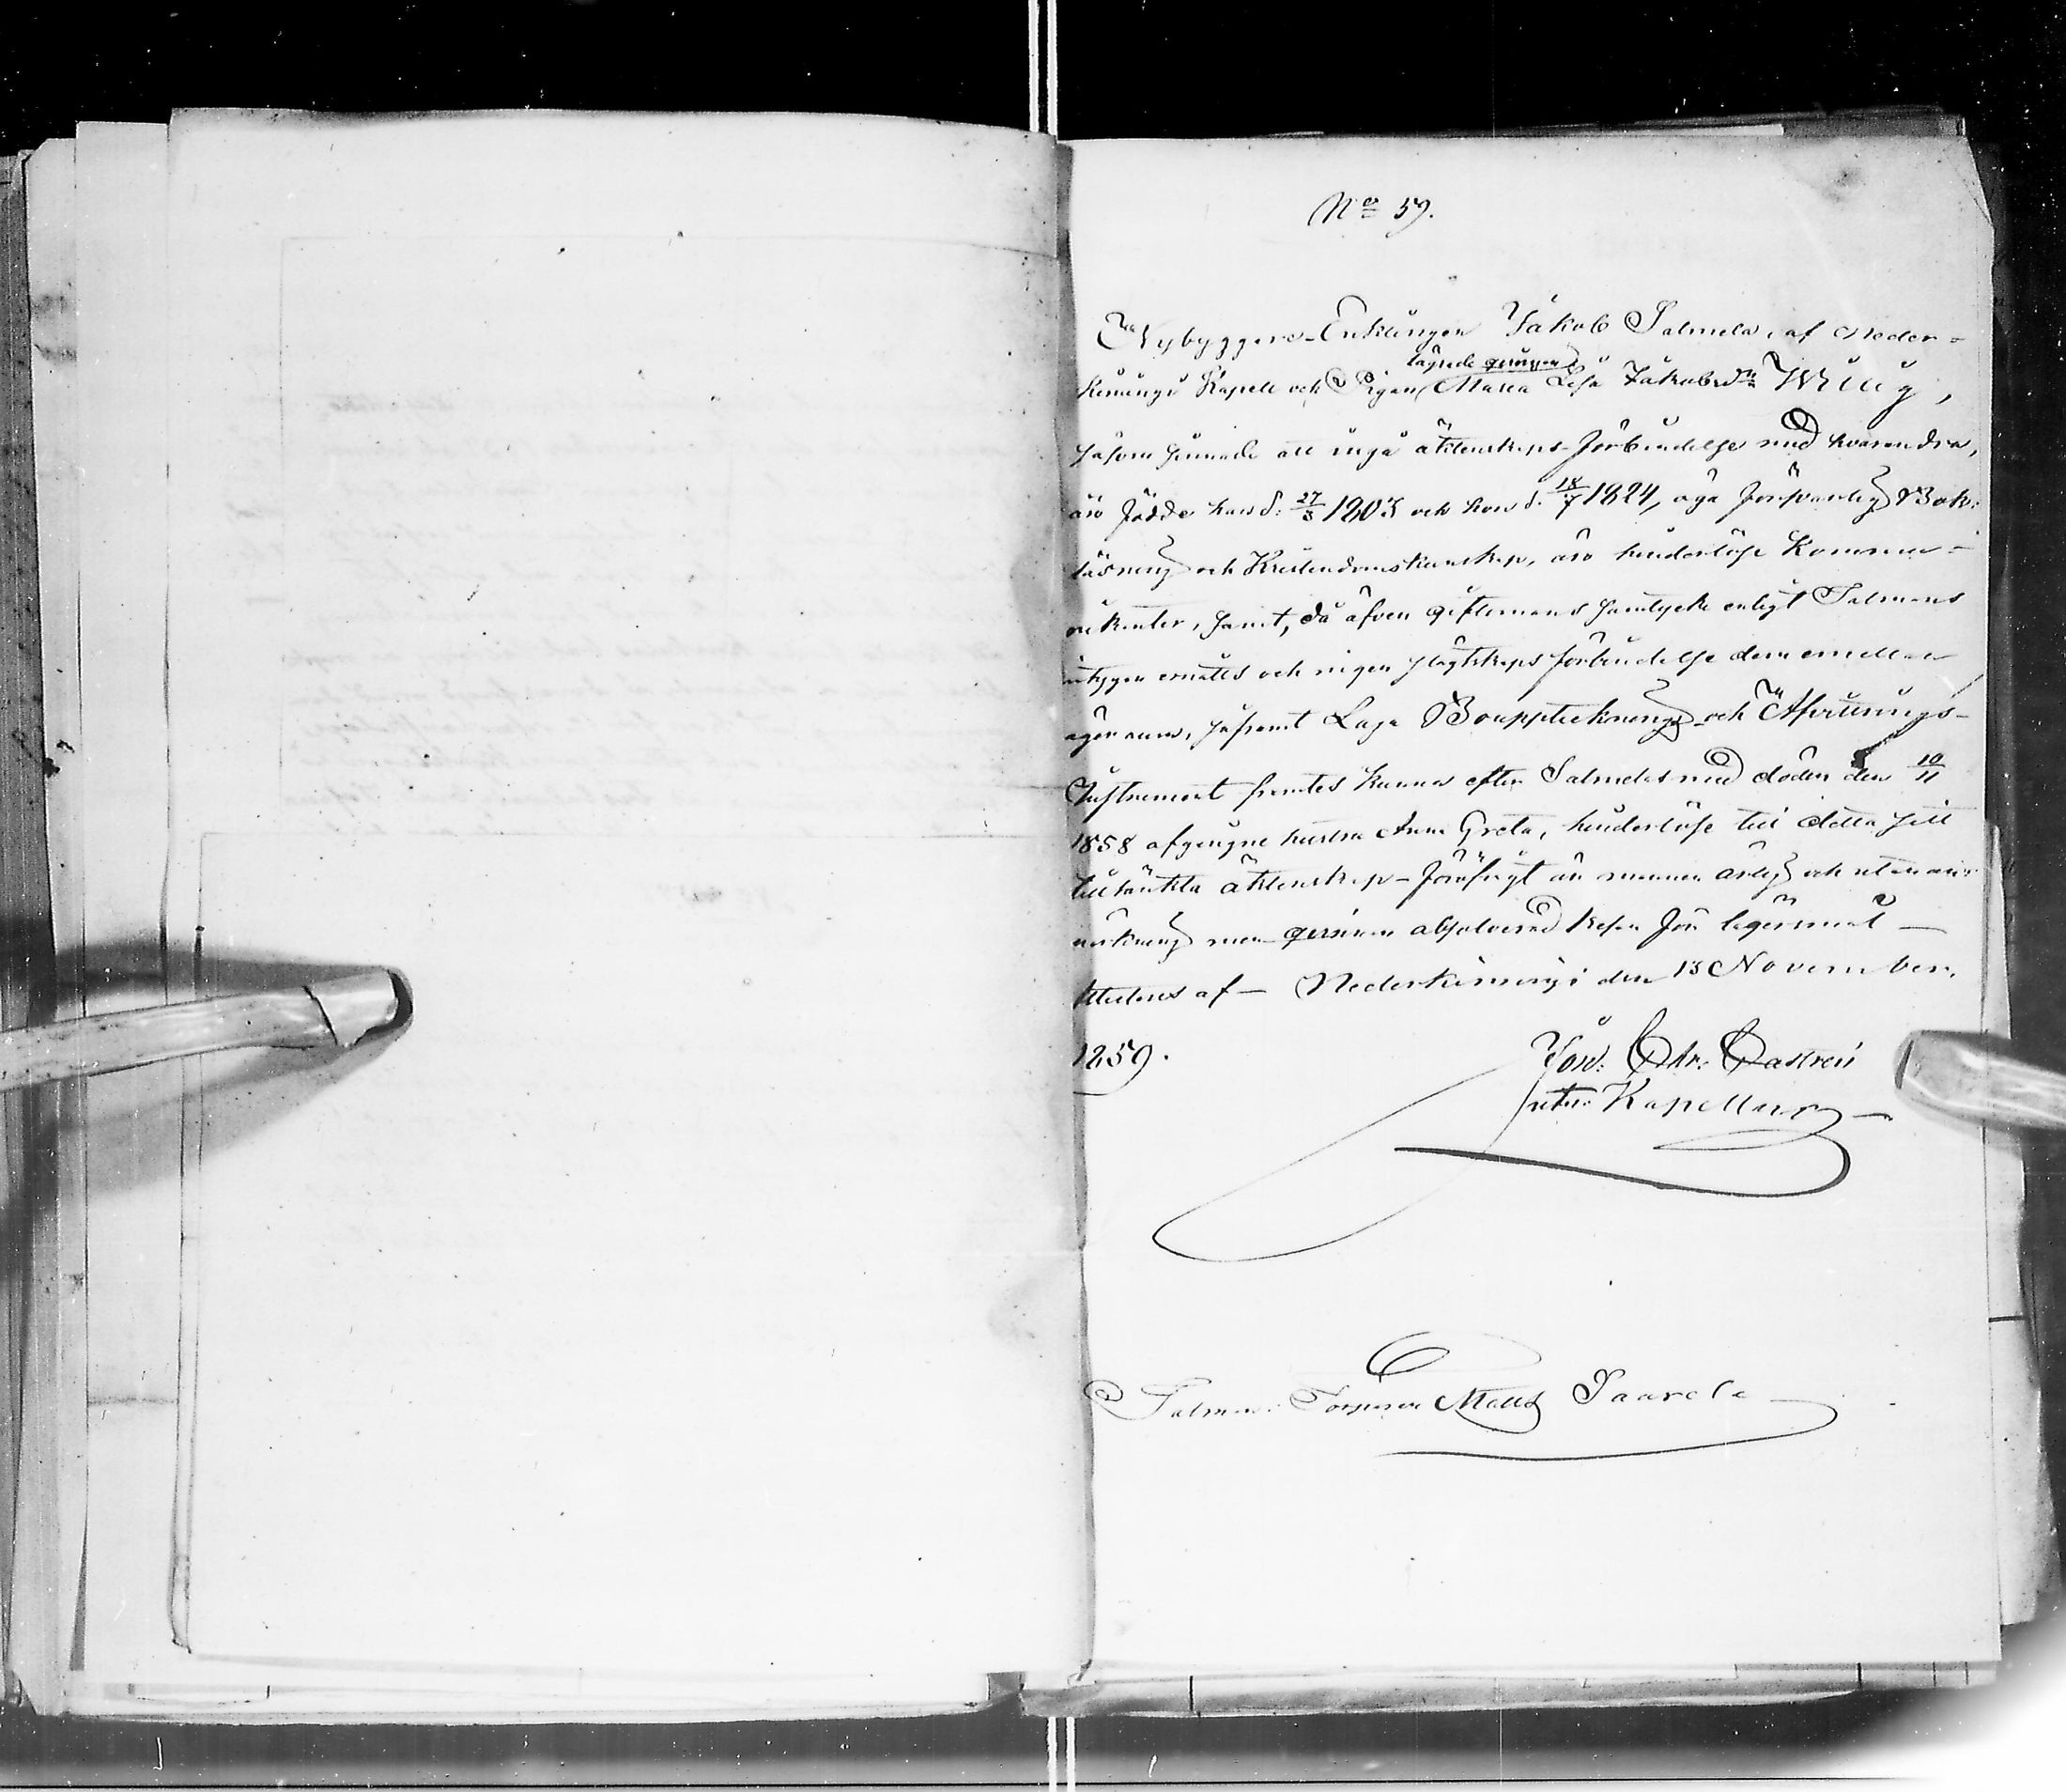 No 59.
Nybyggare-Enklingen Jakob Salmela, af Neder-
lägrade qvinnan
kemingi Kapell och Pigan Maria Lisa Jakobsdr Willig,
såsom sinnade att ingå äktenskaps-förbindelse med hvarandra,
äro födde han d. 27/3 1803 och hon d. 18/7 1824, äga försvarlig Bok-
läsning och Kristendomskunskap, äro hinderlöse Kommu-
nikanter, samt, då äfven giftomans samtycke enligt Talmans
intygan ernåtts och ingen slägtskaps förbindelse dem emellan
äger rum, juframt Laga Bouppteknings och Afvittrings-
Instrument framtes kunna efter Salmelas med döden den 10/11
1858 afgångne hustru Anna Greta, hinderlöse till detta sitt
tilltänkta äktenskap - Föröfrigt är mannen ärlig och utan an-
märkning men qvinnan absolverad för lägersmål -
Attesteras af - Nederkemingi den 13 November.
1859.
Joh: Chr: Castrén
Kapellan
Talman: Torparen Matts Saarela